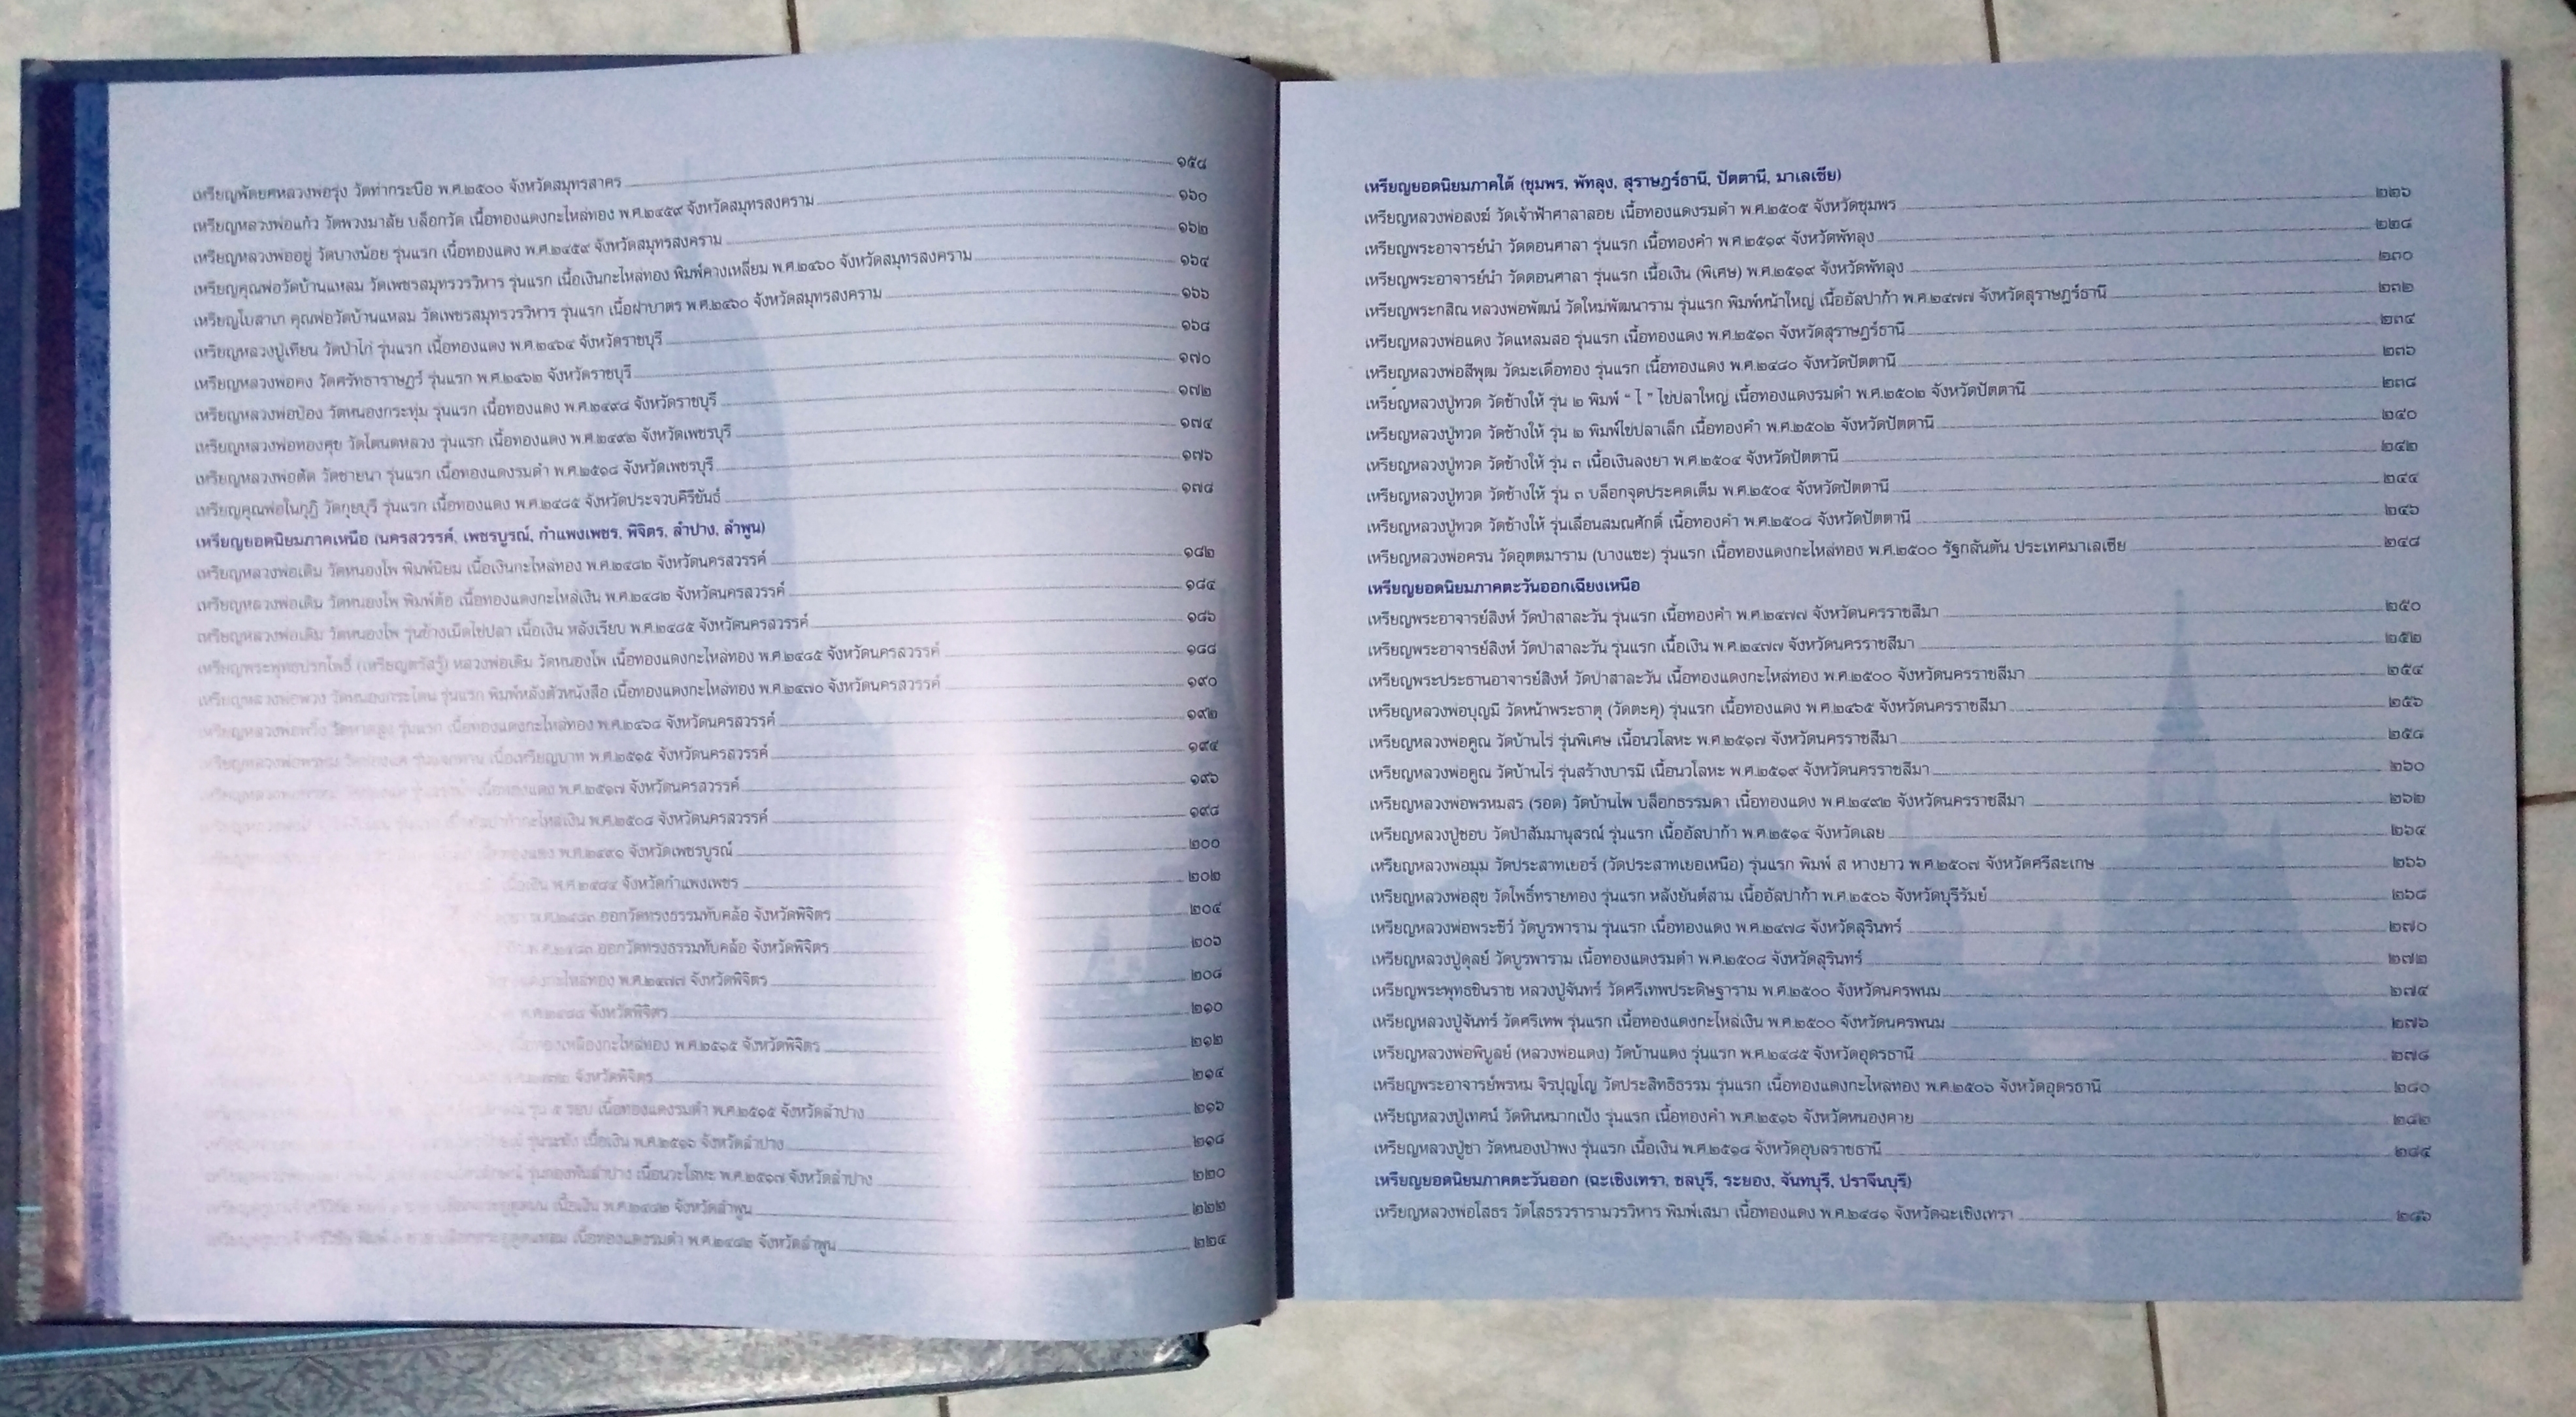 เหรียญพัดยศหลวงพ่อรุ่ง วัดท่ากระบือ พ.ศ.๒๕๐๐ จังหวัดสมุทรสาคร ๑๕๘
เหรียญหลวงพ่อแก้ว วัดพวงมาลัย บล็อกวัด เนื้อทองแดงกะไหล่ทอง พ.ศ.๒๔๕๙ จังหวัดสมุทรสงคราม ๑๖๐
เหรียญหลวงพ่ออยู่ วัดบางน้อย รุ่นแรก เนื้อทองแดง พ.ศ.๒๔๕๙ จังหวัดสมุทรสงคราม ๑๖๒
เหรียญคุณพ่อวัดบ้านแหลม วัดเพชรสมุทรวรวิหาร รุ่นแรก เนื้อเงินกะไหล่ทอง พิมพ์คางเหลี่ยม พ.ศ.๒๔๖๐ จังหวัดสมุทรสงคราม ๑๖๔
เหรียญใบสาเก คุณพ่อวัดบ้านแหลม วัดเพชรสมุทรวรวิหาร รุ่นแรก เนื้อฝาบาตร พ.ศ.๒๔๖๐ จังหวัดสมุทรสงคราม ๑๖๖
เหรียญหลวงปู่เทียน วัดป่าไก่ รุ่นแรก เนื้อทองแดง พ.ศ.๒๔๖๔ จังหวัดราชบุรี ๑๖๘
เหรียญหลวงพ่อคง วัดศรัทธาราษฎร์ รุ่นแรก พ.ศ.๒๔๖๒ จังหวัดราชบุรี ๑๗๐
เหรียญหลวงพ่อป๋อง วัดหนองกระทุ่ม รุ่นแรก เนื้อทองแดง พ.ศ.๒๔๙๘ จังหวัดราชบุรี ๑๗๒
เหรียญหลวงพ่อทองศุข วัดโตนดหลวง รุ่นแรก เนื้อทองแดง พ.ศ.๒๔๙๒ จังหวัดเพชรบุรี ๑๗๔
เหรียญหลวงพ่อตัด วัดชายนา รุ่นแรก เนื้อทองแดงรมดำ พ.ศ.๒๕๑๘ จังหวัดเพชรบุรี ๑๗๖
เหรียญคุณพ่อในกุฏิ วัดกุยบุรี รุ่นแรก เนื้อทองแดง พ.ศ.๒๔๘๕ จังหวัดประจวบคีรีขันธ์ ๑๗๘
เหรียญยอดนิยมภาคเหนือ (นครสวรรค์, เพชรบูรณ์, กำแพงเพชร, พิจิตร, ลำปาง, ลำพูน)
เหรียญหลวงพ่อเดิม วัดหนองโพ พิมพ์นิยม เนื้อเงินกะไหล่ทอง พ.ศ.๒๔๘๒ จังหวัดนครสวรรค์ ๑๘๒
เหรียญหลวงพ่อเดิม วัดหนองโพ พิมพ์ต้อ เนื้อทองแดงกะไหล่เงิน พ.ศ.๒๔๘๒ จังหวัดนครสวรรค์ ๑๘๔
เหรียญหลวงพ่อเดิม วัดหนองโพ รุ่นช้างเม็ดไข่ปลา เนื้อเงิน หลังเรียบ พ.ศ.๒๔๘๕ จังหวัดนครสวรรค์ ๑๘๖
เหรียญพระพุทธปรกโพธิ์ (เหรียญตรัสรู้) หลวงพ่อเดิม วัดหนองโพ เนื้อทองแดงกะไหล่ทอง พ.ศ.๒๔๘๕ จังหวัดนครสวรรค์ ๑๘๘
เหรียญหลวงพ่อพวง วัดหนองกระโดน รุ่นแรก พิมพ์หลังตัวหนังสือ เนื้อทองแดงกะไหล่ทอง พ.ศ.๒๔๗๐ จังหวัดนครสวรรค์ ๑๙๐
เหรียญหลวงพ่อพวง รุ่นแรก เนื้อทองแดงกะไหล่ทอง พ.ศ.๒๔๖๘ จังหวัดนครสวรรค์ ๑๙๒
เนื้อเหรียญบาท พ.ศ.๒๕๑๕ จังหวัดนครสวรรค์ ๑๙๔
เนื้อทองแดง พ.ศ.๒๕๑๗ จังหวัดนครสวรรค์ ๑๙๖
กะไหล่เงิน พ.ศ.๒๕๐๘ จังหวัดนครสวรรค์ ๑๙๘
พ.ศ.๒๔๙๑ จังหวัดเพชรบูรณ์ ๒๐๐
เนื้อเงิน พ.ศ.๒๔๘๔ จังหวัดกำแพงเพชร ๒๐๒
ออกวัดทรงธรรมทับคล้อ จังหวัดพิจิตร ๒๐๔
ออกวัดทรงธรรมทับคล้อ จังหวัดพิจิตร ๒๐๖
กะไหล่ทอง พ.ศ.๒๔๗๗ จังหวัดพิจิตร ๒๐๘
จังหวัดพิจิตร ๒๑๐
กะไหล่ทอง พ.ศ.๒๕๑๕ จังหวัดพิจิตร ๒๑๒
จังหวัดพิจิตร ๒๑๔
รุ่น ๕ รอบ เนื้อทองแดงรมดำ พ.ศ.๒๕๑๕ จังหวัดลำปาง ๒๑๖
เนื้อเงิน พ.ศ.๒๕๑๖ จังหวัดลำปาง ๒๑๘
รุ่นกองพันลำปาง เนื้อนวะโลหะ พ.ศ.๒๕๑๗ จังหวัดลำปาง ๒๒๐
เนื้อเงิน พ.ศ.๒๔๘๒ จังหวัดลำพูน ๒๒๒
เนื้อทองแดงรมดำ พ.ศ.๒๔๘๒ จังหวัดลำพูน ๒๒๔
เหรียญยอดนิยมภาคใต้ (ชุมพร, พัทลุง, สุราษฎร์ธานี, ปัตตานี, มาเลเซีย)
เหรียญหลวงพ่อสงฆ์ วัดเจ้าฟ้าศาลาลอย เนื้อทองแดงรมดำ พ.ศ.๒๕๐๕ จังหวัดชุมพร ๒๒๖
เหรียญพระอาจารย์นำ วัดดอนศาลา รุ่นแรก เนื้อทองคำ พ.ศ.๒๕๑๙ จังหวัดพัทลุง ๒๒๘
เหรียญพระอาจารย์นำ วัดดอนศาลา รุ่นแรก เนื้อเงิน (พิเศษ) พ.ศ.๒๕๑๙ จังหวัดพัทลุง ๒๓๐
เหรียญพระกสิณ หลวงพ่อพัฒน์ วัดใหม่พัฒนาราม รุ่นแรก พิมพ์หน้าใหญ่ เนื้ออัลปาก้า พ.ศ.๒๔๗๗ จังหวัดสุราษฎร์ธานี ๒๓๒
เหรียญหลวงพ่อแดง วัดแหลมสอ รุ่นแรก เนื้อทองแดง พ.ศ.๒๕๑๓ จังหวัดสุราษฎร์ธานี ๒๓๔
เหรียญหลวงพ่อสีพุฒ วัดมะเดื่อทอง รุ่นแรก เนื้อทองแดง พ.ศ.๒๔๘๐ จังหวัดปัตตานี ๒๓๖
เหรียญหลวงปู่ทวด วัดช้างให้ รุ่น ๒ พิมพ์ “ ไ ” ไข่ปลาใหญ่ เนื้อทองแดงรมดำ พ.ศ.๒๕๐๒ จังหวัดปัตตานี ๒๓๘
เหรียญหลวงปู่ทวด วัดช้างให้ รุ่น ๒ พิมพ์ไข่ปลาเล็ก เนื้อทองคำ พ.ศ.๒๕๐๒ จังหวัดปัตตานี ๒๔๐
เหรียญหลวงปู่ทวด วัดช้างให้ รุ่น ๓ เนื้อเงินลงยา พ.ศ.๒๕๐๔ จังหวัดปัตตานี ๒๔๒
เหรียญหลวงปู่ทวด วัดช้างให้ รุ่น ๓ บล็อกจุดประคดเต็ม พ.ศ.๒๕๐๔ จังหวัดปัตตานี ๒๔๔
เหรียญหลวงปู่ทวด วัดช้างให้ รุ่นเลื่อนสมณศักดิ์ เนื้อทองคำ พ.ศ.๒๕๐๘ จังหวัดปัตตานี ๒๔๖
เหรียญหลวงพ่อครน วัดอุตตมาราม (บางแซะ) รุ่นแรก เนื้อทองแดงกะไหล่ทอง พ.ศ.๒๕๐๐ รัฐกลันตัน ประเทศมาเลเซีย ๒๔๘
เหรียญยอดนิยมภาคตะวันออกเฉียงเหนือ
เหรียญพระอาจารย์สิงห์ วัดป่าสาละวัน รุ่นแรก เนื้อทองคำ พ.ศ.๒๔๗๗ จังหวัดนครราชสีมา ๒๕๐
เหรียญพระอาจารย์สิงห์ วัดป่าสาละวัน รุ่นแรก เนื้อเงิน พ.ศ.๒๔๗๗ จังหวัดนครราชสีมา ๒๕๒
เหรียญพระประธานอาจารย์สิงห์ วัดป่าสาละวัน เนื้อทองแดงกะไหล่ทอง พ.ศ.๒๕๐๐ จังหวัดนครราชสีมา ๒๕๔
เหรียญหลวงพ่อบุญมี วัดหน้าพระธาตุ (วัดตะคุ) รุ่นแรก เนื้อทองแดง พ.ศ.๒๔๖๕ จังหวัดนครราชสีมา ๒๕๖
เหรียญหลวงพ่อคูณ วัดบ้านไร่ รุ่นพิเศษ เนื้อนวโลหะ พ.ศ.๒๕๑๗ จังหวัดนครราชสีมา ๒๕๘
เหรียญหลวงพ่อคูณ วัดบ้านไร่ รุ่นสร้างบารมี เนื้อนวโลหะ พ.ศ.๒๕๑๙ จังหวัดนครราชสีมา ๒๖๐
เหรียญหลวงพ่อพรหมสร (รอด) วัดบ้านไพ บล็อกธรรมดา เนื้อทองแดง พ.ศ.๒๔๙๒ จังหวัดนครราชสีมา ๒๖๒
เหรียญหลวงปู่ชอบ วัดป่าสัมมานุสรณ์ รุ่นแรก เนื้ออัลปาก้า พ.ศ.๒๕๑๔ จังหวัดเลย ๒๖๔
เหรียญหลวงพ่อมุม วัดประสาทเยอร์ (วัดประสาทเยอเหนือ) รุ่นแรก พิมพ์ ส หางยาว พ.ศ.๒๕๐๗ จังหวัดศรีสะเกษ ๒๖๖
เหรียญหลวงพ่อสุข วัดโพธิ์ทรายทอง รุ่นแรก หลังยันต์สาม เนื้ออัลปาก้า พ.ศ.๒๕๐๖ จังหวัดบุรีรัมย์ ๒๖๘
เหรียญหลวงพ่อพระชีว์ วัดบูรพาราม รุ่นแรก เนื้อทองแดง พ.ศ.๒๔๗๘ จังหวัดสุรินทร์ ๒๗๐
เหรียญหลวงปู่ดุลย์ วัดบูรพาราม เนื้อทองแดงรมดำ พ.ศ.๒๕๐๘ จังหวัดสุรินทร์ ๒๗๒
เหรียญพระพุทธชินราช หลวงปู่จันทร์ วัดศรีเทพประดิษฐาราม พ.ศ.๒๕๐๐ จังหวัดนครพนม ๒๗๔
เหรียญหลวงปู่จันทร์ วัดศรีเทพ รุ่นแรก เนื้อทองแดงกะไหล่เงิน พ.ศ.๒๕๐๐ จังหวัดนครพนม ๒๗๖
เหรียญหลวงพ่อพิบูลย์ (หลวงพ่อแดง) วัดบ้านแดง รุ่นแรก พ.ศ.๒๔๘๕ จังหวัดอุดรธานี ๒๗๘
เหรียญพระอาจารย์พรหม จิรปุญโญ วัดประสิทธิธรรม รุ่นแรก เนื้อทองแดงกะไหล่ทอง พ.ศ.๒๕๐๖ จังหวัดอุดรธานี ๒๘๐
เหรียญหลวงปู่เทศน์ วัดหินหมากเป้ง รุ่นแรก เนื้อทองคำ พ.ศ.๒๕๑๖ จังหวัดหนองคาย ๒๘๒
เหรียญหลวงปู่ชา วัดหนองป่าพง รุ่นแรก เนื้อเงิน พ.ศ.๒๕๑๘ จังหวัดอุบลราชธานี ๒๘๔
เหรียญยอดนิยมภาคตะวันออก (ฉะเชิงเทรา, ชลบุรี, ระยอง, จันทบุรี, ปราจีนบุรี)
เหรียญหลวงพ่อโสธร วัดโสธรวรารามวรวิหาร พิมพ์เสมา เนื้อทองแดง พ.ศ.๒๔๘๑ จังหวัดฉะเชิงเทรา ๒๘๖